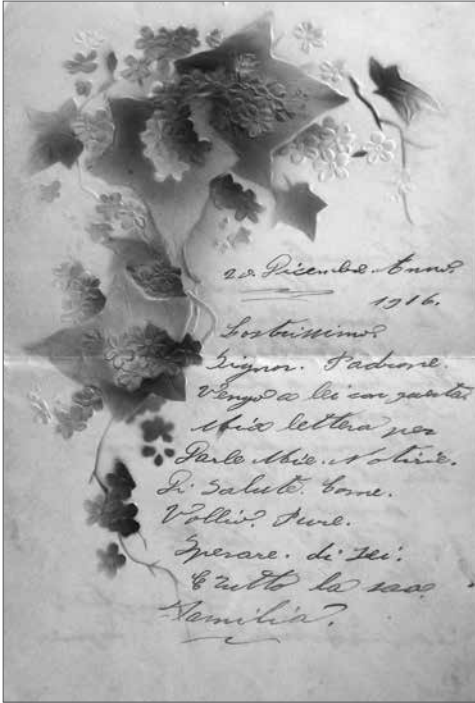 20. Dicembre. Anno.
1916.
Lostrissimo.
Signor. Padrone.
Vengo a lei con questa
Mia lettera per
Darle Mie. Notizie.
Di Salute. Come.
Vollio. Pure.
Sperare. di Lei.
E tutto la sua
Familia.